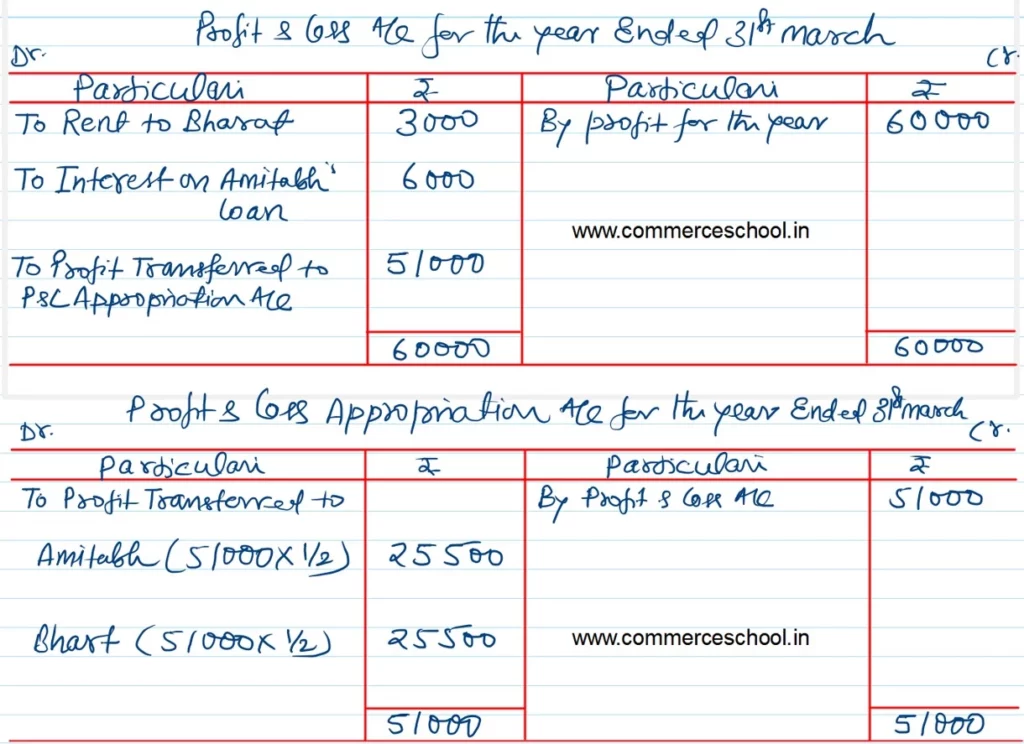 Profit & Loss A/c for the year Ended 31st march
Dr. Cr.
Particulars ₹ Particulars ₹
To Rent to Bharat 3000 By profit for the year 60000
To Interest on Amitabh's 6000
loan
www.commerceschool.in
To Profit Transferred to 51000
P&L Appropriation A/c
60000 60000
Profit & Loss Appropriation A/c for the year Ended 31st march
Dr. Cr.
Particulars ₹ Particulars ₹
To Profit Transferred to By Profit & Loss A/c 51000
Amitabh (51000 X 1/2) 25500
Bhart (51000 X 1/2) 25500 www.commerceschool.in
51000 51000